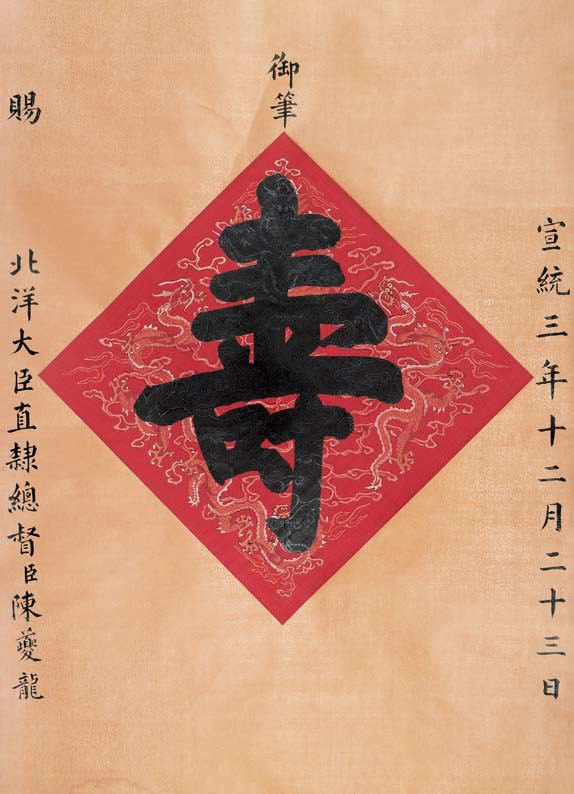 宣統三年十二月二十三日
御筆
壽
賜
北洋大臣直隸總督臣陳夔龍